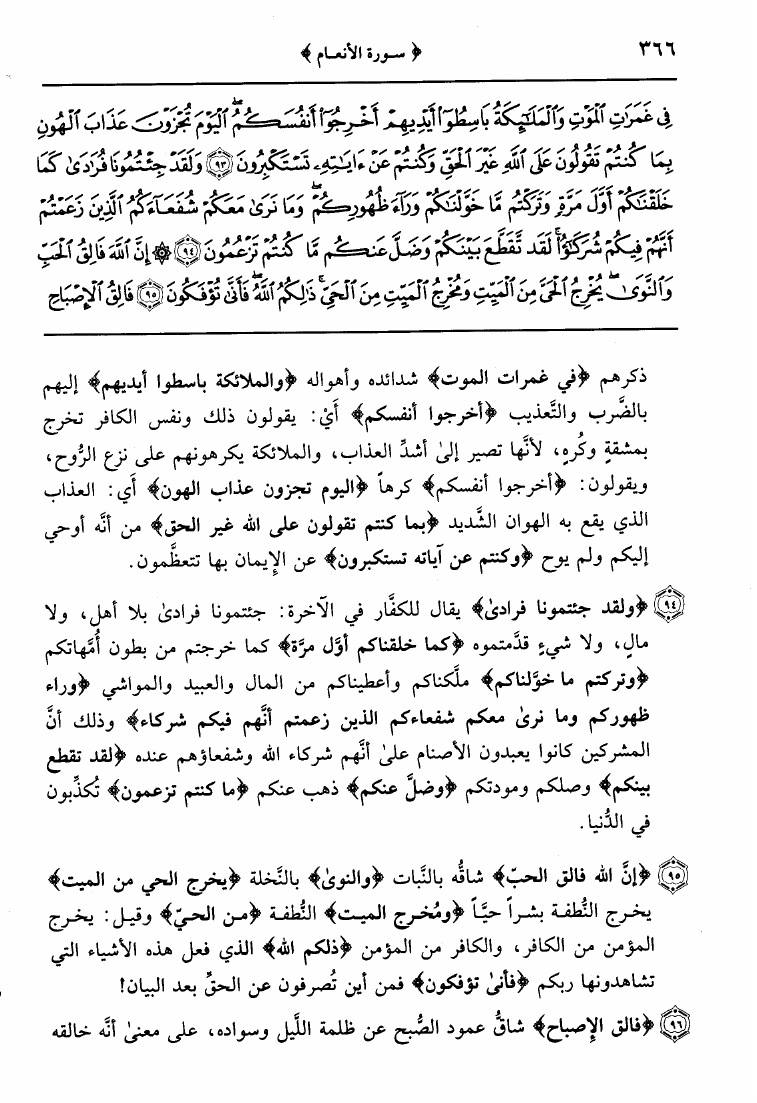 ٣٦٦
﴿ سورة الأنعام ﴾
فِي غَمَرَاتِ الْمَوْتِ وَالْمَلَٰٓئِكَةُ بَاسِطُوٓا۟ أَيْدِيهِمْ أَخْرِجُوٓا۟ أَنفُسَكُمُ ۖ الْيَوْمَ تُجْزَوْنَ عَذَابَ الْهُونِ
بِمَا كُنتُمْ تَقُولُونَ عَلَى اللَّهِ غَيْرَ الْحَقِّ وَكُنتُمْ عَنْ ءَايَٰتِهِۦ تَسْتَكْبِرُونَ ٩٣ وَلَقَدْ جِئْتُمُونَا فُرَٰدَىٰ كَمَا
خَلَقْنَٰكُمْ أَوَّلَ مَرَّةٍ وَتَرَكْتُم مَّا خَوَّلْنَٰكُمْ وَرَآءَ ظُهُورِكُمْ ۖ وَمَا نَرَىٰ مَعَكُمْ شُفَعَآءَكُمُ الَّذِينَ زَعَمْتُمْ
أَنَّهُمْ فِيكُمْ شُرَكَٰٓؤُا۟ ۚ لَقَد تَّقَطَّعَ بَيْنَكُمْ وَضَلَّ عَنكُم مَّا كُنتُمْ تَزْعُمُونَ ٩٤ ۞ إِنَّ اللَّهَ فَالِقُ الْحَبِّ
وَالنَّوَىٰ ۖ يُخْرِجُ الْحَيَّ مِنَ الْمَيِّتِ وَمُخْرِجُ الْمَيِّتِ مِنَ الْحَيِّ ۚ ذَٰلِكُمُ اللَّهُ ۖ فَأَنَّىٰ تُؤْفَكُونَ ٩٥ فَالِقُ الْإِصْبَاحِ
ذكرهم ﴿في غمرات الموت﴾ شدائده وأهواله ﴿والملائكة باسطوا أيديهم﴾ إليهم
بالضَّرب والتَّعذيب ﴿أخرجوا أنفسكم﴾ أيْ: يقولون ذلك ونفس الكافر تخرج
بمشقةٍ وكُرهٍ، لأنَّها تصير إلىٰ أشدِّ العذاب، والملائكة يكرهونهم على نزع الرُّوح،
ويقولون: ﴿أخرجوا أنفسكم﴾ كرهاً ﴿اليوم تجزون عذاب الهون﴾ أي: العذاب
الذي يقع به الهوان الشَّديد ﴿بما كنتم تقولون على الله غير الحق﴾ من أنَّه أوحي
إليكم ولم يوح ﴿وكنتم عن آياته تستكبرون﴾ عن الإِيمان بها تتعظَّمون.
٩٤ ﴿ولقد جئتمونا فرادىٰ﴾ يقال للكفَّار في الآخرة: جئتمونا فرادىٰ بلا أهل، ولا
مالٍ، ولا شيءٍ قدَّمتموه ﴿كما خلقناكم أوَّل مرَّة﴾ كما خرجتم من بطون أُمَّهاتكم
﴿وتركتم ما خوَّلناكم﴾ ملَّكناكم وأعطيناكم من المال والعبيد والمواشي ﴿وراء
ظهوركم وما نرىٰ معكم شفعاءكم الذين زعمتم أنَّهم فيكم شركاء﴾ وذلك أنَّ
المشركين كانوا يعبدون الأصنام علىٰ أنَّهم شركاء الله وشفعاؤهم عنده ﴿لقد تقطع
بينكم﴾ وصلكم ومودتكم ﴿وضلَّ عنكم﴾ ذهب عنكم ﴿ما كنتم تزعمون﴾ تُكذِّبون
في الدُّنيا.
٩٥ ﴿إنَّ الله فالق الحبّ﴾ شاقُّه بالنَّبات ﴿والنوىٰ﴾ بالنَّخلة ﴿يخرج الحي من الميت﴾
يخرج النُّطفة بشراً حيَّاً ﴿ومُخرج الميت﴾ النُّطفة ﴿من الحيّ﴾ وقيل: يخرج
المؤمن من الكافر، والكافر من المؤمن ﴿ذلكم الله﴾ الذي فعل هذه الأشياء التي
تشاهدونها ربكم ﴿فأنىٰ تؤفكون﴾ فمن أين تُصرفون عن الحقِّ بعد البيان!
٩٦ ﴿فالق الإِصباح﴾ شاقُّ عمود الصُّبح عن ظلمة اللَّيل وسواده، على معنىٰ أنَّه خالقه